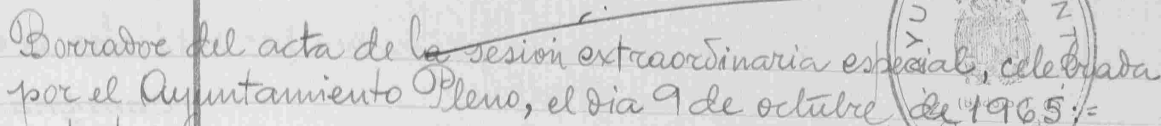 Borrador del acta de la sesion extraordinaria especial, celebrada
por el Ayuntamiento Pleno, el dia 9 de octubre de 1965;=